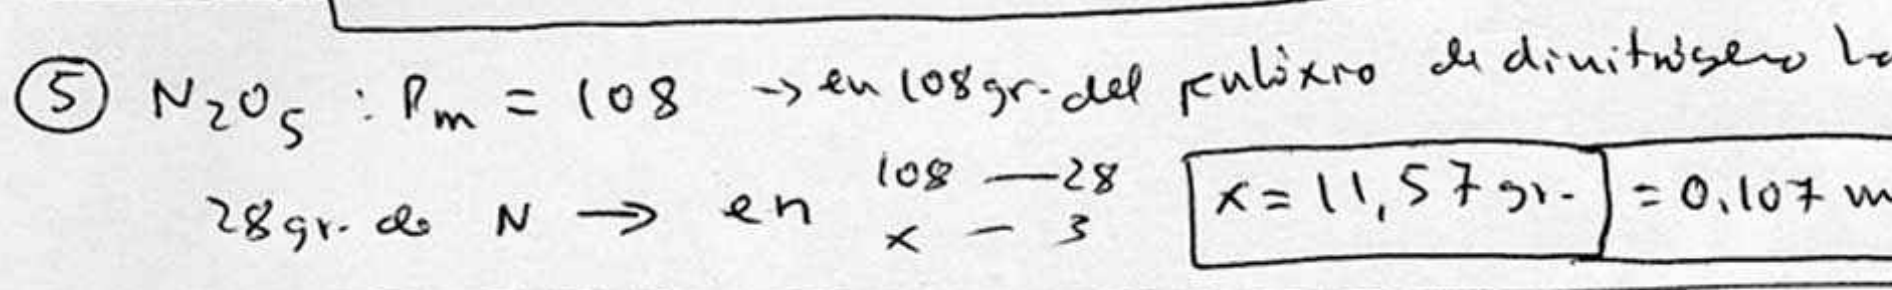 ⑤ N₂O₅ : Pm = 108 → en 108 gr. del pentóxido de dinitrógeno ha
28 gr. de N → en 108 — 28 x = 11,57 gr. = 0.107 m
x — 3